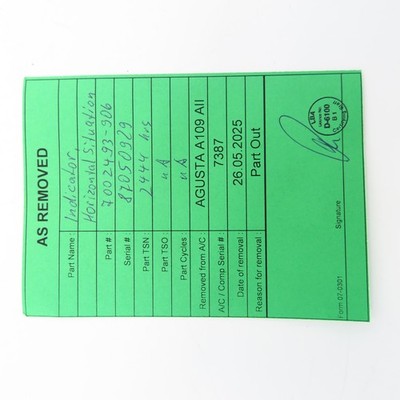 AS REMOVED
Part Name : Indicator,
Horizontal Situation
Part # : 7002493-906
Serial# : 87050929
Part TSN : 2444 hrs
Part TSO : nA
Part Cycles nA
Removed from A/C : AGUSTA A109 AII
A/C / Comp Serial # : 7387
Date of removal : 26.05.2025
Reason for removal : Part Out
LBA
D-6100
Signature
Form 07-0301